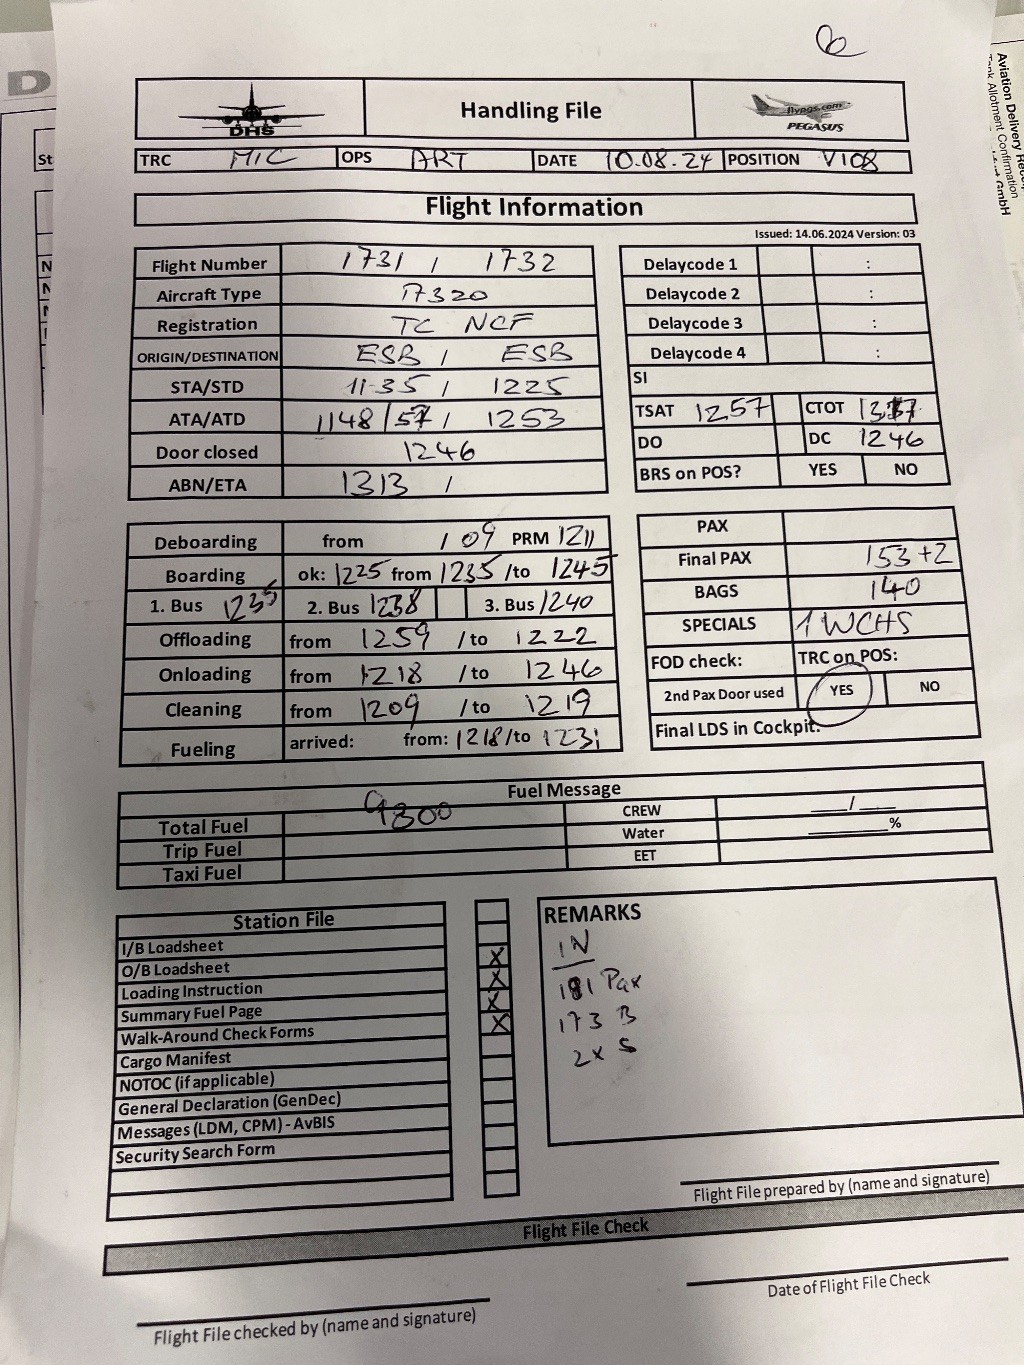 D
Aviation Delivery
Tank Allotment Confirmation
GmbH
DHS
Handling File
flypgs.com
PEGASUS
TRC MIC OPS ART DATE 10.08.24 POSITION V108
Flight Information
Issued: 14.06.2024 Version: 03
Flight Number 1731 / 1732
Aircraft Type A320
Registration TC NCF
ORIGIN/DESTINATION ESB / ESB
STA/STD 11:35 / 1225
ATA/ATD 1148/57 / 1253
Door closed 1246
ABN/ETA 1313 /
Delaycode 1 :
Delaycode 2 :
Delaycode 3 :
Delaycode 4 :
SI
TSAT 1257 CTOT
DO DC 1246
BRS on POS? YES NO
Deboarding from / 09 PRM 1211
Boarding ok: 1225 from 1235 /to 1245
1. Bus 1235 2. Bus 1238 3. Bus 1240
Offloading from 1259 /to 1222
Onloading from 1218 /to 1246
Cleaning from 1209 /to 1219
Fueling arrived: from: 1218 /to 1231
PAX
Final PAX 153+2
BAGS 140
SPECIALS 1 WCHS
FOD check: TRC on POS:
2nd Pax Door used YES NO
Final LDS in Cockpit:
Fuel Message
Total Fuel 9800 CREW /
Trip Fuel Water %
Taxi Fuel EET
Station File
I/B Loadsheet
O/B Loadsheet
Loading Instruction X
Summary Fuel Page X
Walk-Around Check Forms X
Cargo Manifest X
NOTOC (if applicable)
General Declaration (GenDec)
Messages (LDM, CPM) - AvBIS
Security Search Form
REMARKS
IN
181 Pax
173 B
2x S
Flight File prepared by (name and signature)
Flight File Check
Date of Flight File Check
Flight File checked by (name and signature)